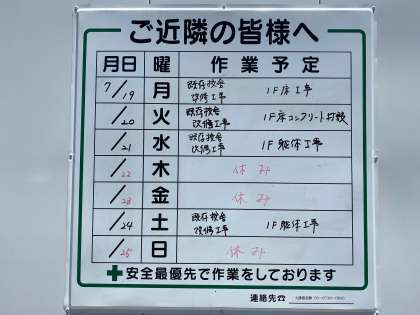 ご近隣の皆様へ
月日 曜 作業予定
7/19 月 既存校舎改修工事 1F床工事
/20 火 既存校舎改修工事 1F床コンクリート打設
/21 水 既存校舎改修工事 1F躯体工事
/22 木 休み
/23 金 休み
/24 土 既存校舎改修工事 1F躯体工事
/25 日 休み
安全最優先で作業をしております
連絡先☎